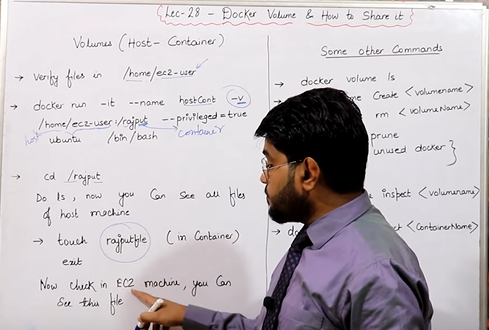 Lec-28 - Docker Volume & How to Share it
Volumes (Host - Container)
→ Verify files in /home/ec2-user
→ docker run -it --name hostCont -v
/home/ec2-user:/rajput --privileged=true
host container
ubuntu /bin/bash
→ cd /rajput
Do ls, now you Can See all files
of host machine
→ touch rajputfile (in Container)
exit
Now check in EC2 machine, you Can
See this file
Some other Commands
→ docker volume ls
Create <volumename>
rm <volumeName>
prune
unused docker }
inspect <volumename>
<ContainerName>